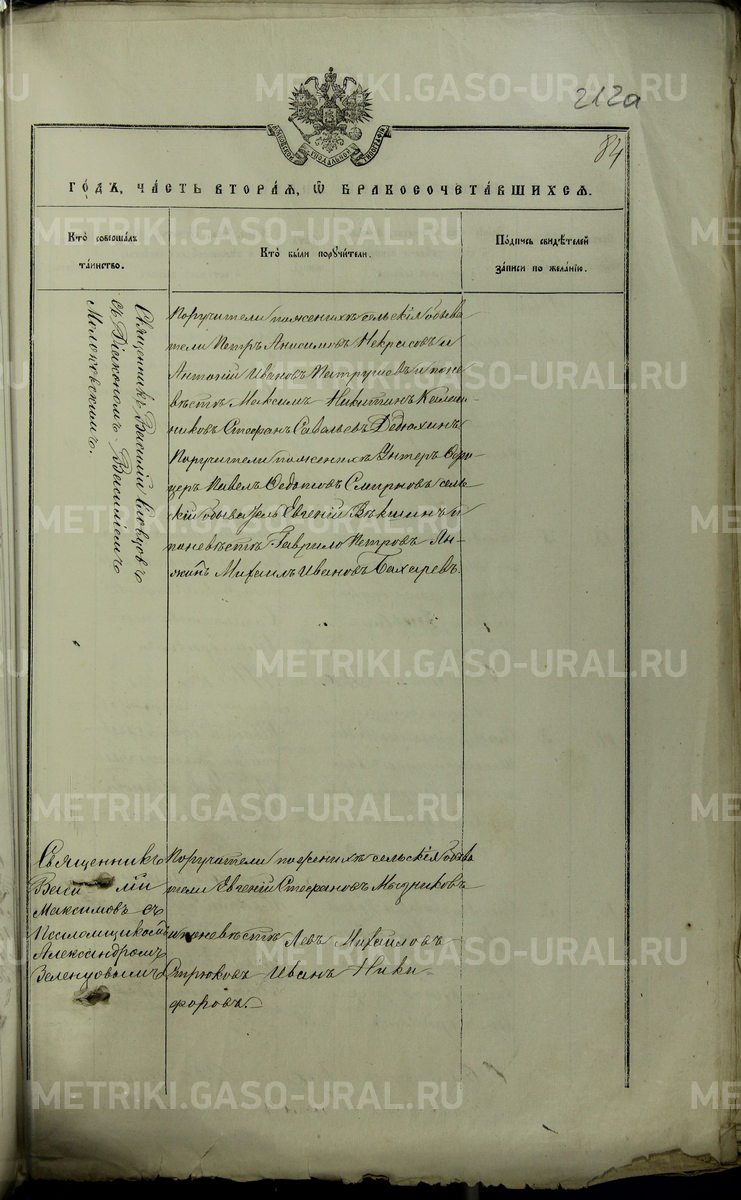 METRIKI.GASO-URAL.RU
212а
84
ГОДЪ, ЧАСТЬ ВТОРАЯ, Ѡ БРАКОСОЧЕТАВШИХСЯ.
Кто совершалъ
таинство.
Кто были поручители.
Подпись свидѣтелей
записи по желанію.
Священникъ Василій Словцовъ
съ Діакономъ Василіемъ
Молоковскимъ.
Поручители по женихѣ сельскія обыва
тели Петръ Анисимовъ Некрасовъ и
Антоній Ивановъ Патрушевъ и по не
вѣстѣ Максимъ Никитинъ
никовъ Стефанъ Савельевъ Дедюхинъ
Поручители по женихѣ Унтеръ Офи-
церъ Павелъ Федотовъ Смирновъ сель
скій обыватель Евгеній Векшинъ и
по невѣстѣ Гаврило Петровъ
Михаилъ Ивановъ Бахаревъ.
Священникъ
Васи лій
Максимовъ съ
Псаломщикомъ
Александромъ
Зеленцовымъ
Поручители по женихѣ сельскія обыва
тели Евгеній Стефановъ Мызниковъ
и по невѣстѣ Левъ Михайловъ
Иванъ Ники-
форовъ.